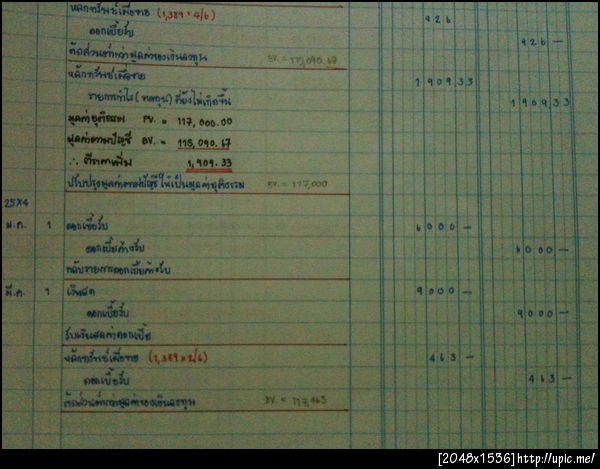 หลักทรัพย์เผื่อขาย (1,389 × 4/6) 926
ดอกเบี้ยรับ 926 –
ตัดส่วนต่ำกว่ามูลค่าของเงินลงทุน BV. = 115,090.67
หลักทรัพย์เผื่อขาย 1909.33
รายการกำไร (ขาดทุน) ที่ยังไม่เกิดขึ้น 1909.33
มูลค่ายุติธรรม FV. = 117,000.00
มูลค่าตามบัญชี BV. = 115,090.67
∴ ตีราคาเพิ่ม 1,909.33
ปรับปรุงมูลค่าตามบัญชีให้เป็นมูลค่ายุติธรรม BV. = 117,000
25X4
ม.ค. 1 ดอกเบี้ยรับ 6000 –
ดอกเบี้ยค้างรับ 6000 –
กลับรายการดอกเบี้ยค้างรับ
มี.ค. 1 เงินสด 9000 –
ดอกเบี้ยรับ 9000 –
รับเงินสดค่าดอกเบี้ย
หลักทรัพย์เผื่อขาย (1,389 × 2/6) 463 –
ดอกเบี้ยรับ 463 –
ตัดส่วนต่ำกว่ามูลค่าของเงินลงทุน BV. = 117,463
[2048x1536]http://upic.me/